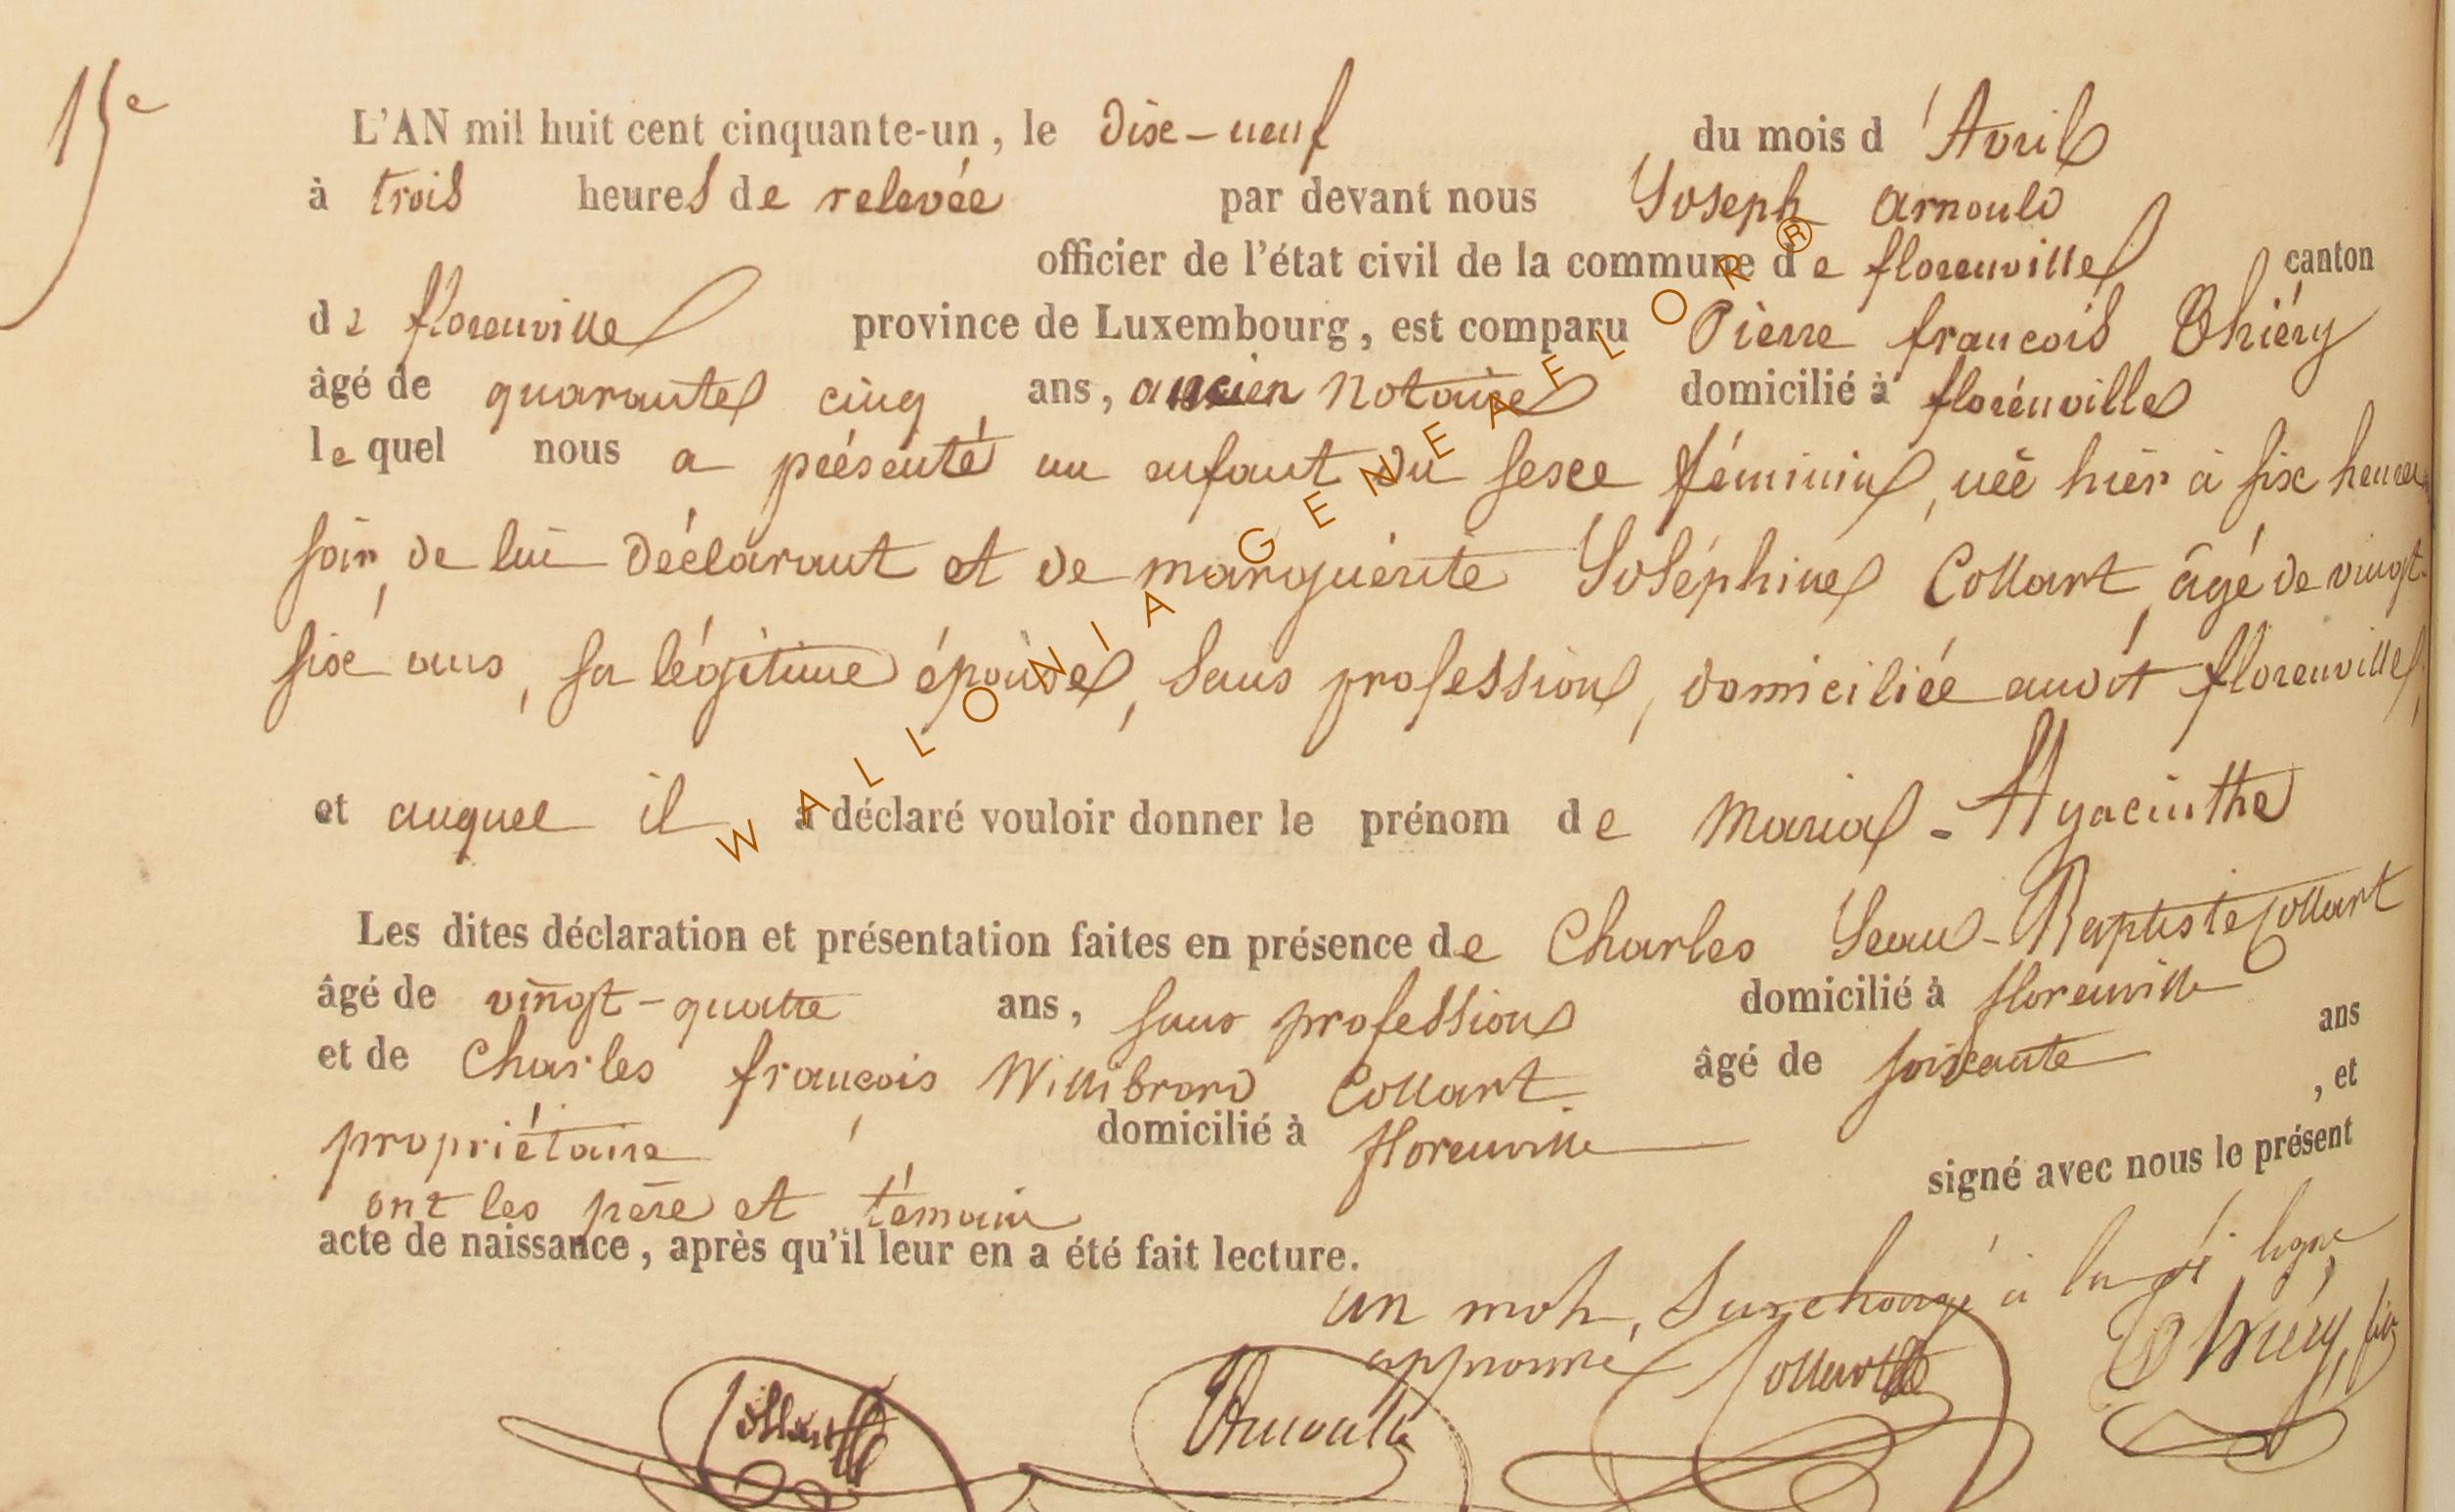 15e
L'AN mil huit cent cinquante-un, le dixe-neuf du mois d'Avril
à trois heures de relevée par devant nous Joseph Arnould
officier de l'état civil de la commune de florenville canton
de florenville province de Luxembourg, est comparu Pierre françois Thiéry
âgé de quarante cinq ans, ancien Notaire domicilié à florenville
lequel nous a présenté un enfant du sexe féminin, née hier à six heures
soir, de lui déclarant et de marguerite Joséphine Collart, âgé de vingt-
six ans, sa légitime épouse, sans profession, domiciliée audit florenville,
et auquel il a déclaré vouloir donner le prénom de Maria - Hyacinthe
Les dites déclaration et présentation faites en présence de Charles Jean-Baptiste Collart
âgé de vingt-quatre ans, sans profession domicilié à florenville
et de Charles françois Willibrord Collart âgé de soixante ans
propriétaire, domicilié à florenville, et
ont les père et témoin signé avec nous le présent
acte de naissance, après qu'il leur en a été fait lecture.
un mot, Surchargé à la ligne
approuvé
Collart Arnould Collart Thiéry
WALLONIA GENEAFLOR®